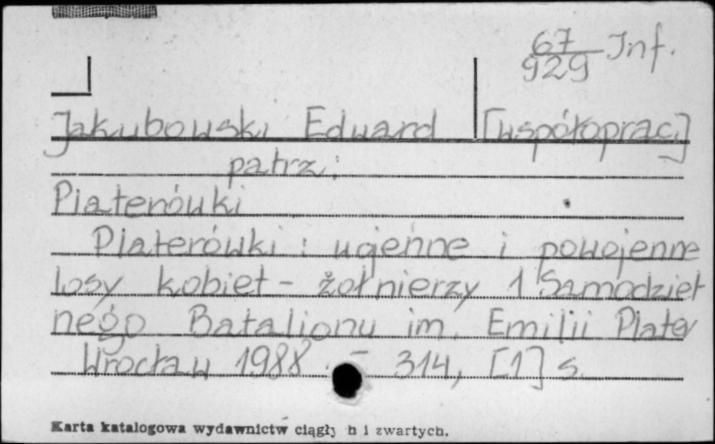 67 Inf.
929
Jakubowski Edward [współoprac.]
patrz:
Platerówki
Platerówki : wojenne i powojenne
losy kobiet - żołnierzy 1 Samodziel
nego Batalionu im. Emilii Plater
Wrocław 1988. - 314, [1] s.
Karta katalogowa wydawnictw ciągłych i zwartych.